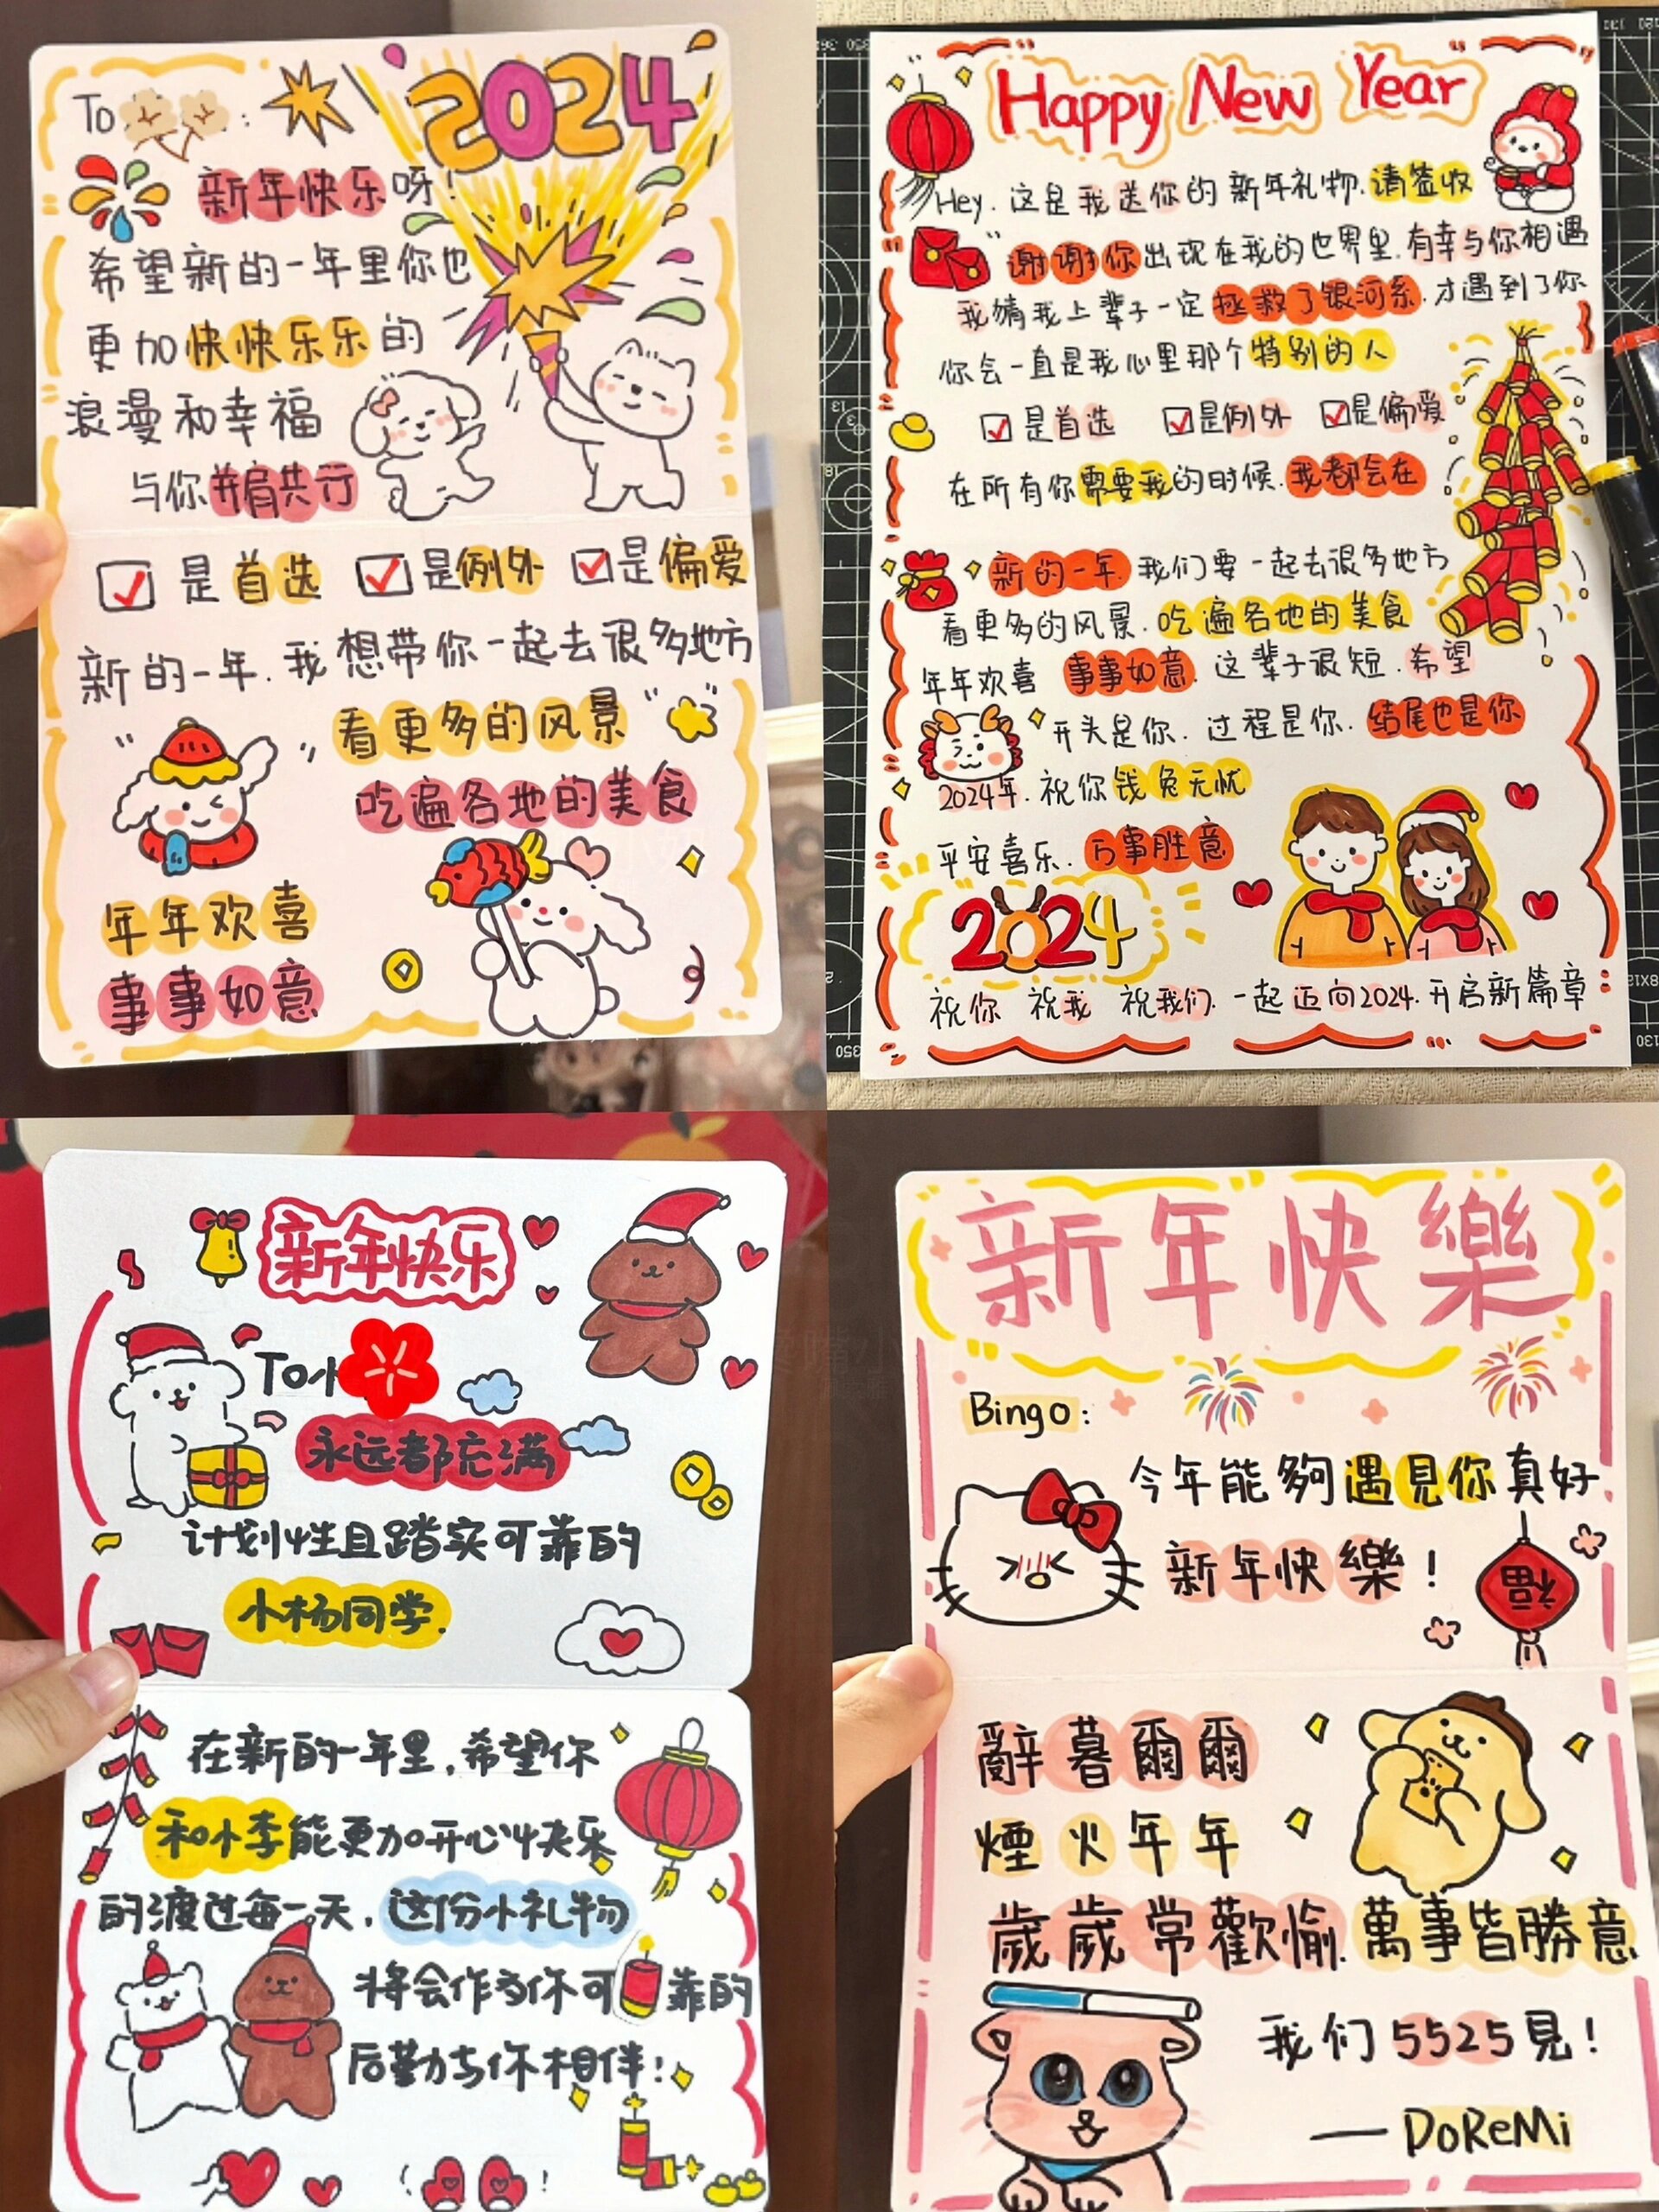 To :
2024
新年快乐呀!
希望新的一年里你也
更加快快乐乐的
浪漫和幸福
与你并肩共行
是首选 是例外 是偏爱
新的一年.我想带你一起去很多地方
看更多的风景
吃遍各地的美食
年年欢喜
事事如意
Happy New Year
Hey.这是我送你的新年礼物.请签收
谢谢你出现在我的世界里.有幸与你相遇
我猜我上辈子一定拯救了银河系.才遇到了你
你会一直是我心里那个特别的人
是首选 是例外 是偏爱
在所有你需要我的时候.我都会在
新的一年.我们要一起去很多地方
看更多的风景.吃遍各地的美食
年年欢喜 事事如意.这辈子很短.希望
开头是你.过程是你.结尾也是你
2024年.祝你钱兔无忧
平安喜乐.万事胜意
2024
祝你 祝我 祝我们.一起迈向2024.开启新篇章
新年快乐
To小
永远都充满
计划性且踏实可靠的
小杨同学.
在新的一年里,希望你
和小李能更加开心快乐
的渡过每一天,这份小礼物
将会作为你可靠的
后勤与你相伴!
新年快樂
Bingo:
今年能夠遇見你真好
新年快樂!
福
辭暮爾爾
煙火年年
歲歲常歡愉.萬事皆勝意
我们5525見!
—DoReMi